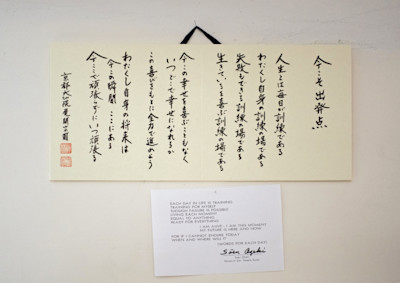 今こそ出発点
人生とは毎日が訓練である
わたくし自身の訓練の場である
失敗もできる訓練の場である
生きているを喜ぶ訓練の場である
今この幸せを喜ぶこともなく
いつどこで幸せになれるか
この喜びをもとに全力で進めよう
わたくし自身の将来は
今この瞬間ここにある
今ここで頑張らずにいつ頑張る
京都大仙院 尾関宗園
EACH DAY IN LIFE IS TRAINING
TRAINING FOR MYSELF
THOUGH FAILURE IS POSSIBLE
LIVING EACH MOMENT
EQUAL TO ANYTHING
READY FOR EVERYTHING
I AM ALIVE - I AM THIS MOMENT
MY FUTURE IS HERE AND NOW
FOR IF I CANNOT ENDURE TODAY
WHEN AND WHERE WILL I
Sōen Ozeki